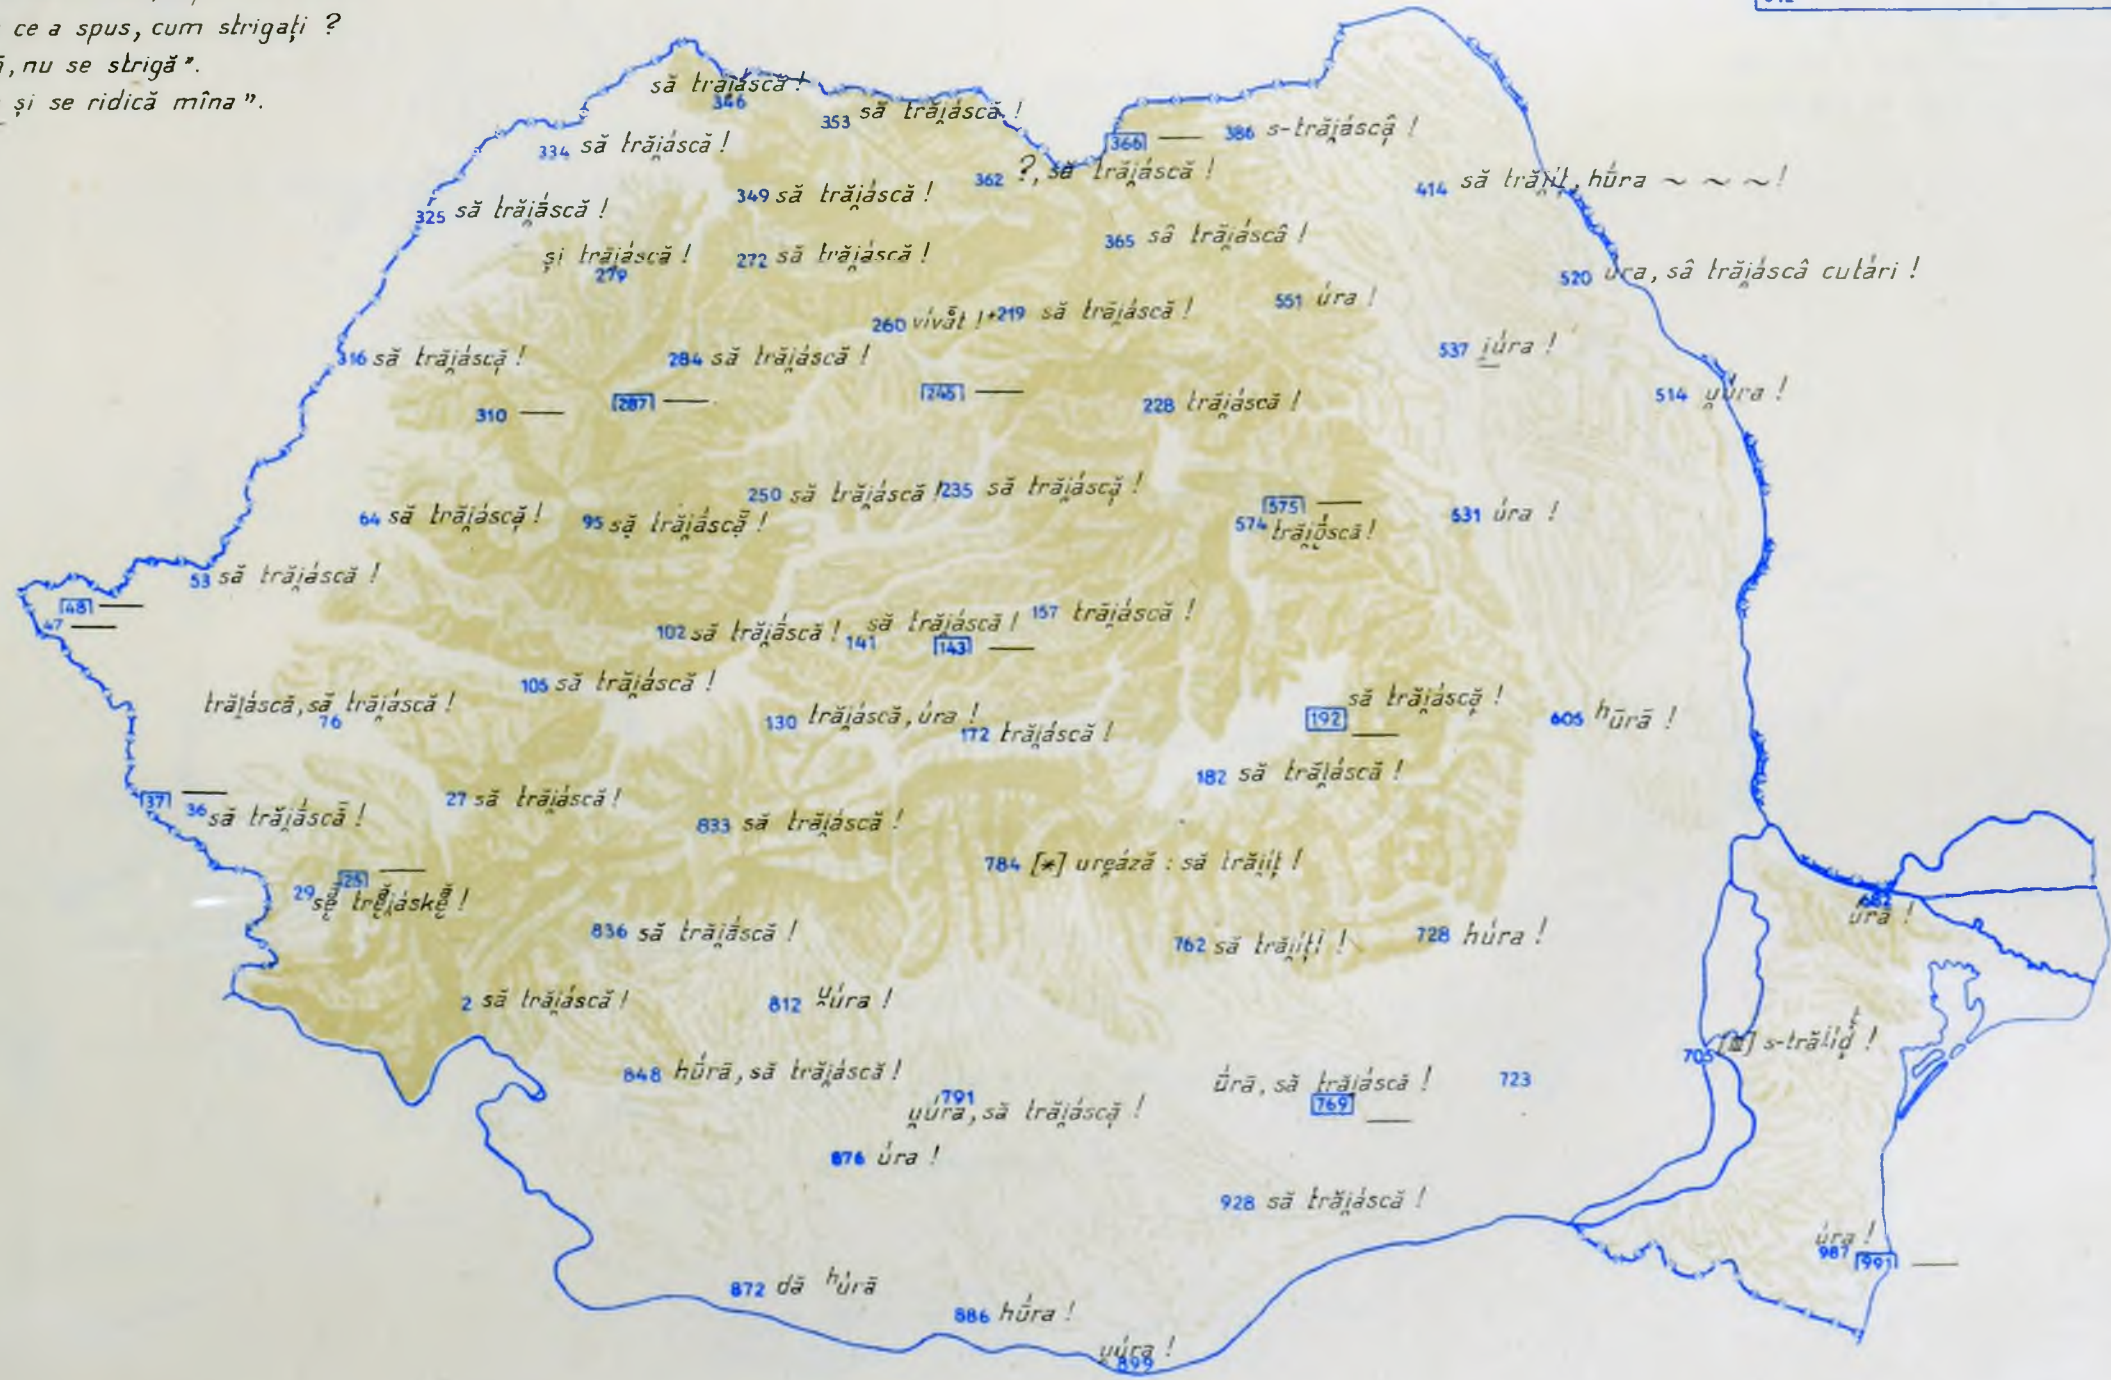 ce a spus, cum strigați ?
, nu se strigă”.
și se ridică mîna”.
să trăi̯áscă !
346
353 să trăi̯áscă !
334 să trăi̯áscă !
366 —
386 s-trăi̯áscă̂ !
362 ?, să trăi̯áscă !
349 să trăi̯áscă !
414 să trăi̯íț, hū́ra ~ ~ ~ !
325 să trăi̯áscă !
365 sâ trăi̯áscâ !
și trăi̯áscă !
279
272 să trăi̯áscă !
520 úra, sâ trăi̯áscâ cutári !
260 vivăt ! +
219 să trăi̯áscă !
551 úra !
316 să trăi̯áscặ !
284 să trăi̯áscă !
537 i̯úra !
310 —
287 —
245 —
228 trăi̯áscă !
514 u̯úra !
250 să trăi̯áscă !
235 să trăi̯áscặ !
64 să trăi̯áscặ !
95 sặ trăi̯áscặ !
575 —
574 trăi̯ǫ́scă !
531 úra !
53 să trăi̯áscă !
48 —
47 —
102 să trăi̯áscă !
să trăi̯áscă !
141
143 —
157 trăi̯áscă !
105 să trăi̯áscă !
trăi̯áscă, să trăi̯áscă !
76
130 trăi̯áscă, úra !
172 trăi̯áscă !
să trăi̯áscặ !
192 —
605 ʰūrā !
182 să trăi̯áscă !
37 —
36 să trăi̯áscă !
27 să trăi̯áscă !
833 să trăi̯áscă !
784 [*] ure̯áză : să trăi̯íț !
25 —
29
836 să trăi̯áscă !
762 să trăi̯íți !
728 húra !
682
úra !
2 să trăi̯áscă !
812 ᵘ̯úra !
705 s-trăi̯íd !
848 hū́rā, să trăi̯áscă !
791
u̯úra, să trăi̯áscặ !
ū́rā, să trăi̯áscă !
769 —
723
876 úra !
928 să trăi̯áscă !
úra !
987
991 —
872 dă ʰúrā
886 hū́ra !
u̯úra !
899